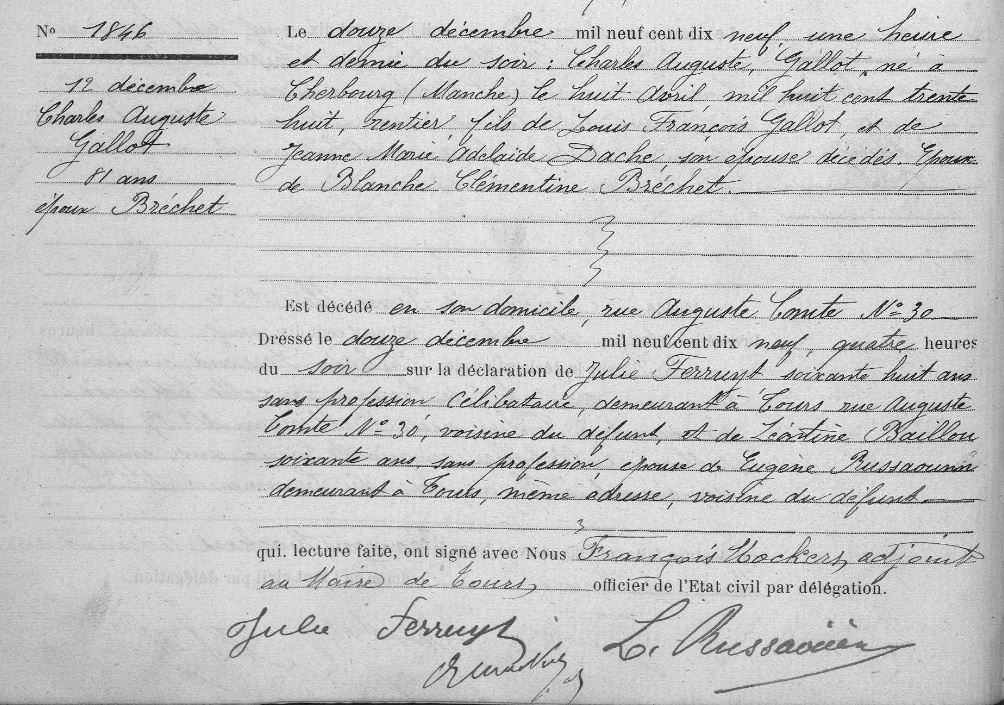 Nº 1846
12 décembre
Charles Auguste
Gallot
81 ans
époux Bréchet
Le douze décembre mil neuf cent dix neuf, une heure
et demie du soir : Charles Auguste, Gallot, né a
Cherbourg (Manche) le huit Avril, mil huit cent trente
huit, rentier, fils de Louis François Gallot, et de
Jeanne Marie Adelaïde Dache son épouse décédés. Epoux
de Blanche Clémentine Bréchet.
Est décédé en son domicile, rue Auguste Comte Nº 30
Dressé le douze décembre mil neuf cent dix neuf, quatre heures
du soir sur la déclaration de Julie Ferruyt soixante huit ans
sans profession Célibataire, demeurant à Tours rue Auguste
Comte Nº 30, voisine du défunt, et de Léontine Baillou
soixante ans, sans profession épouse de Eugène
demeurant à Tours, même adresse, voisine du défunt
qui. lecture faite, ont signé avec Nous François Hockers, adjoint
au Maire de Tours, officier de l'Etat civil par délégation.
Julie Ferruyt
L. Russaouën